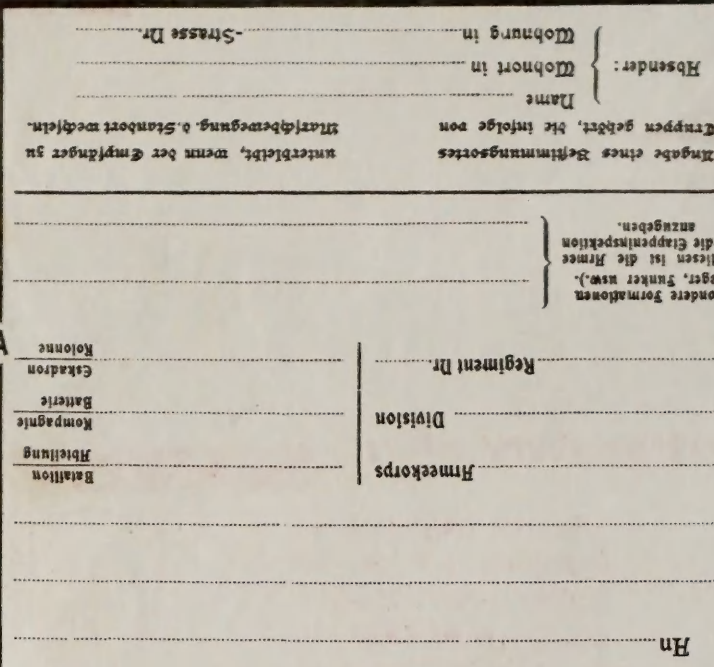 An
Armeekorps
Bataillon
Abteilung
Division
Kompagnie
Batterie
Regiment Nr.
Eskadron
Kolonne
ondere Formationen
eger, Funker usw.).
iesen ist die Armee
die Etappeninspektion
anzugeben.
Angabe eines Bestimmungsortes unterbleibt, wenn der Empfänger zu
Truppen gehört, die infolge von Marschbewegung. d. Standort wechseln.
Absender:
Name
Wohnort in
Wohnung in -Strasse Nr.